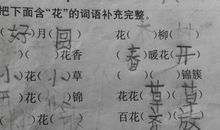 把下面含“花”的词语补充完整。
(好)月(圆) 花( )柳( )
( )( )花香 (春)暖花(开)
小花(小)草 ( )( )锦簇
( )花( )锦 花花(草)(草)
( )花( )( ) 百花( )放